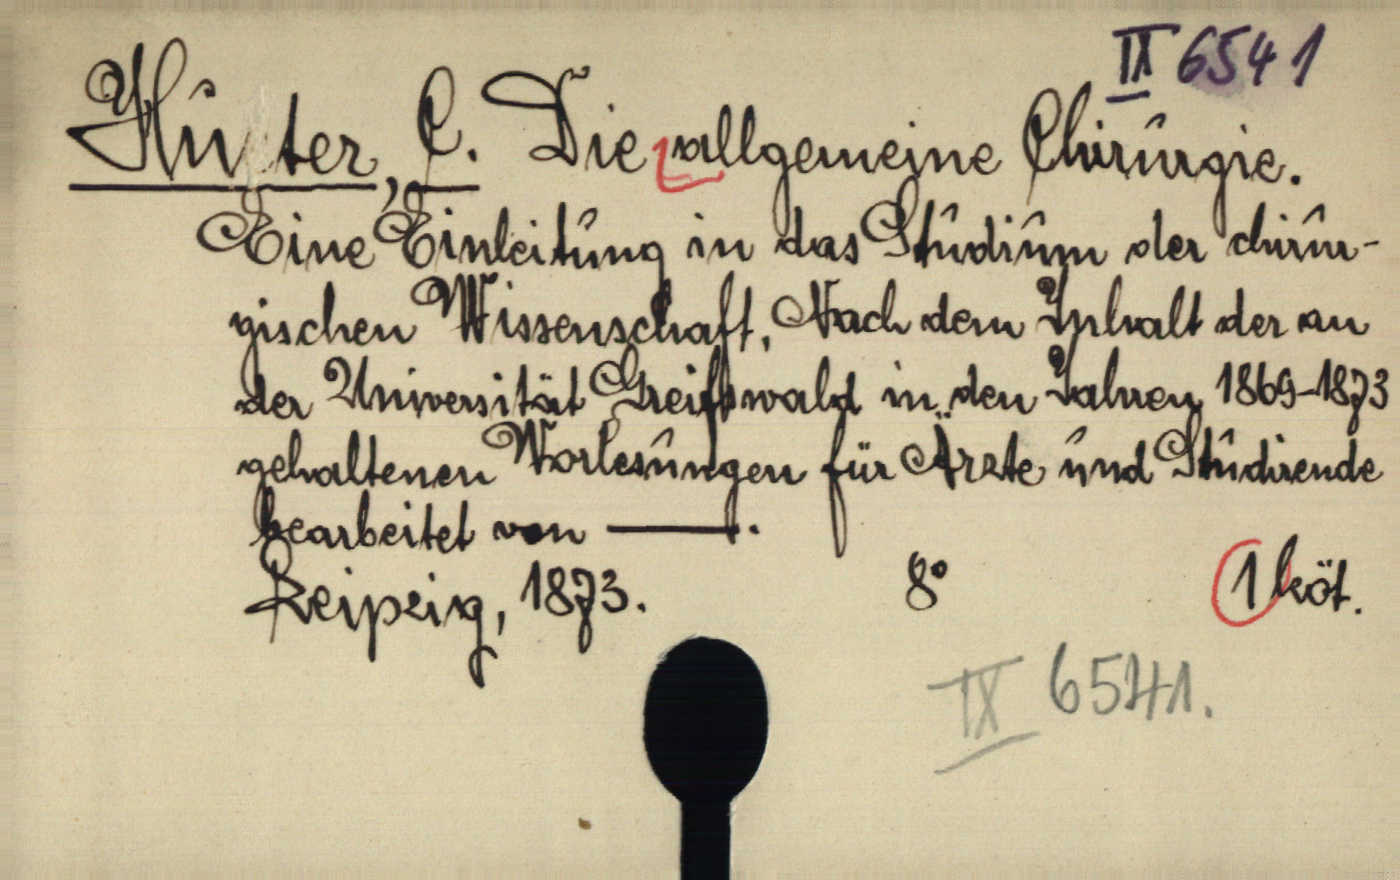 IX 6541
Hüter, C. Die allgemeine Chirurgie.
Eine Einleitung in das Studium der chirur-
gischen Wissenschaft, Nach dem Inhalt der an
der Universität Greifswald in den Jahren 1869-1873
gehaltenen Vorlesungen für Ärzte und Studirende
bearbeitet von ——.
Leipzig, 1873. 8° 1 köt.
IX 6541.